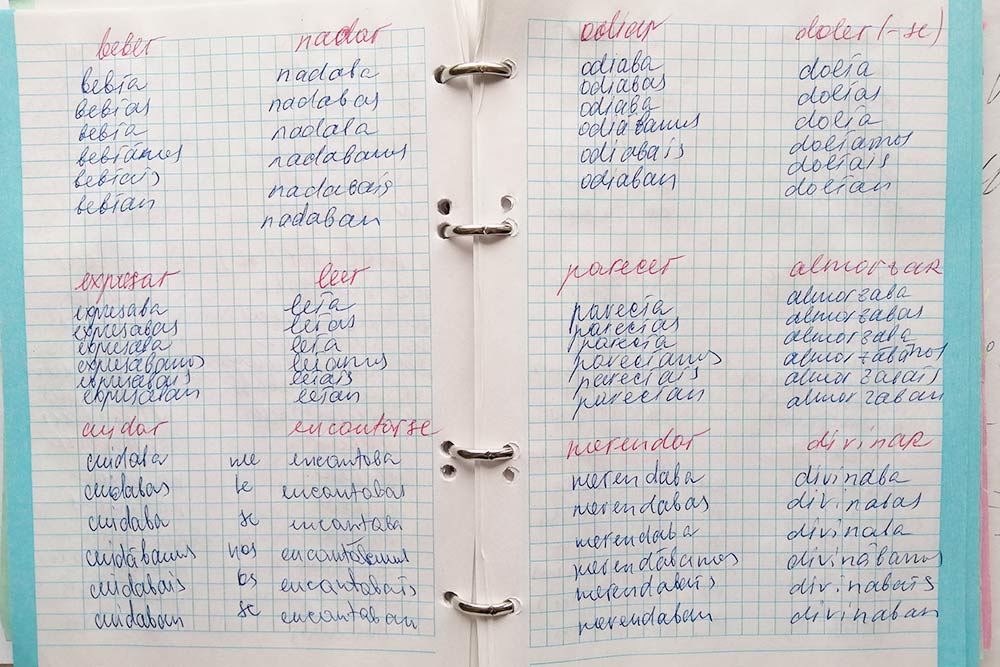 beber
bebía
bebías
bebía
bebíamos
bebíais
bebían
nadar
nadaba
nadabas
nadaba
nadabamos
nadabais
nadaban
expresar
expresaba
expresabas
expresaba
expresábamos
expresabais
expresaban
leer
leía
leías
leía
leíamos
leíais
leían
cuidar
cuidaba
cuidabas
cuidaba
cuidábamos
cuidabais
cuidaban
encantarse
me encantaba
te encantabas
se encantaba
nos encantábamos
os encantabais
se encantaban
odiar
odiaba
odiabas
odiaba
odiábamos
odiabais
odiaban
doler (-se)
dolía
dolías
dolía
dolíamos
dolíais
dolían
parecer
parecía
parecías
parecía
parecíamos
parecíais
parecían
almorzar
almorzaba
almorzabas
almorzaba
almorzábamos
almorzabais
almorzaban
merendar
merendaba
merendabas
merendaba
merendábamos
merendabais
merendaban
divinar
divinaba
divinabas
divinaba
divinábamos
divinabais
divinaban